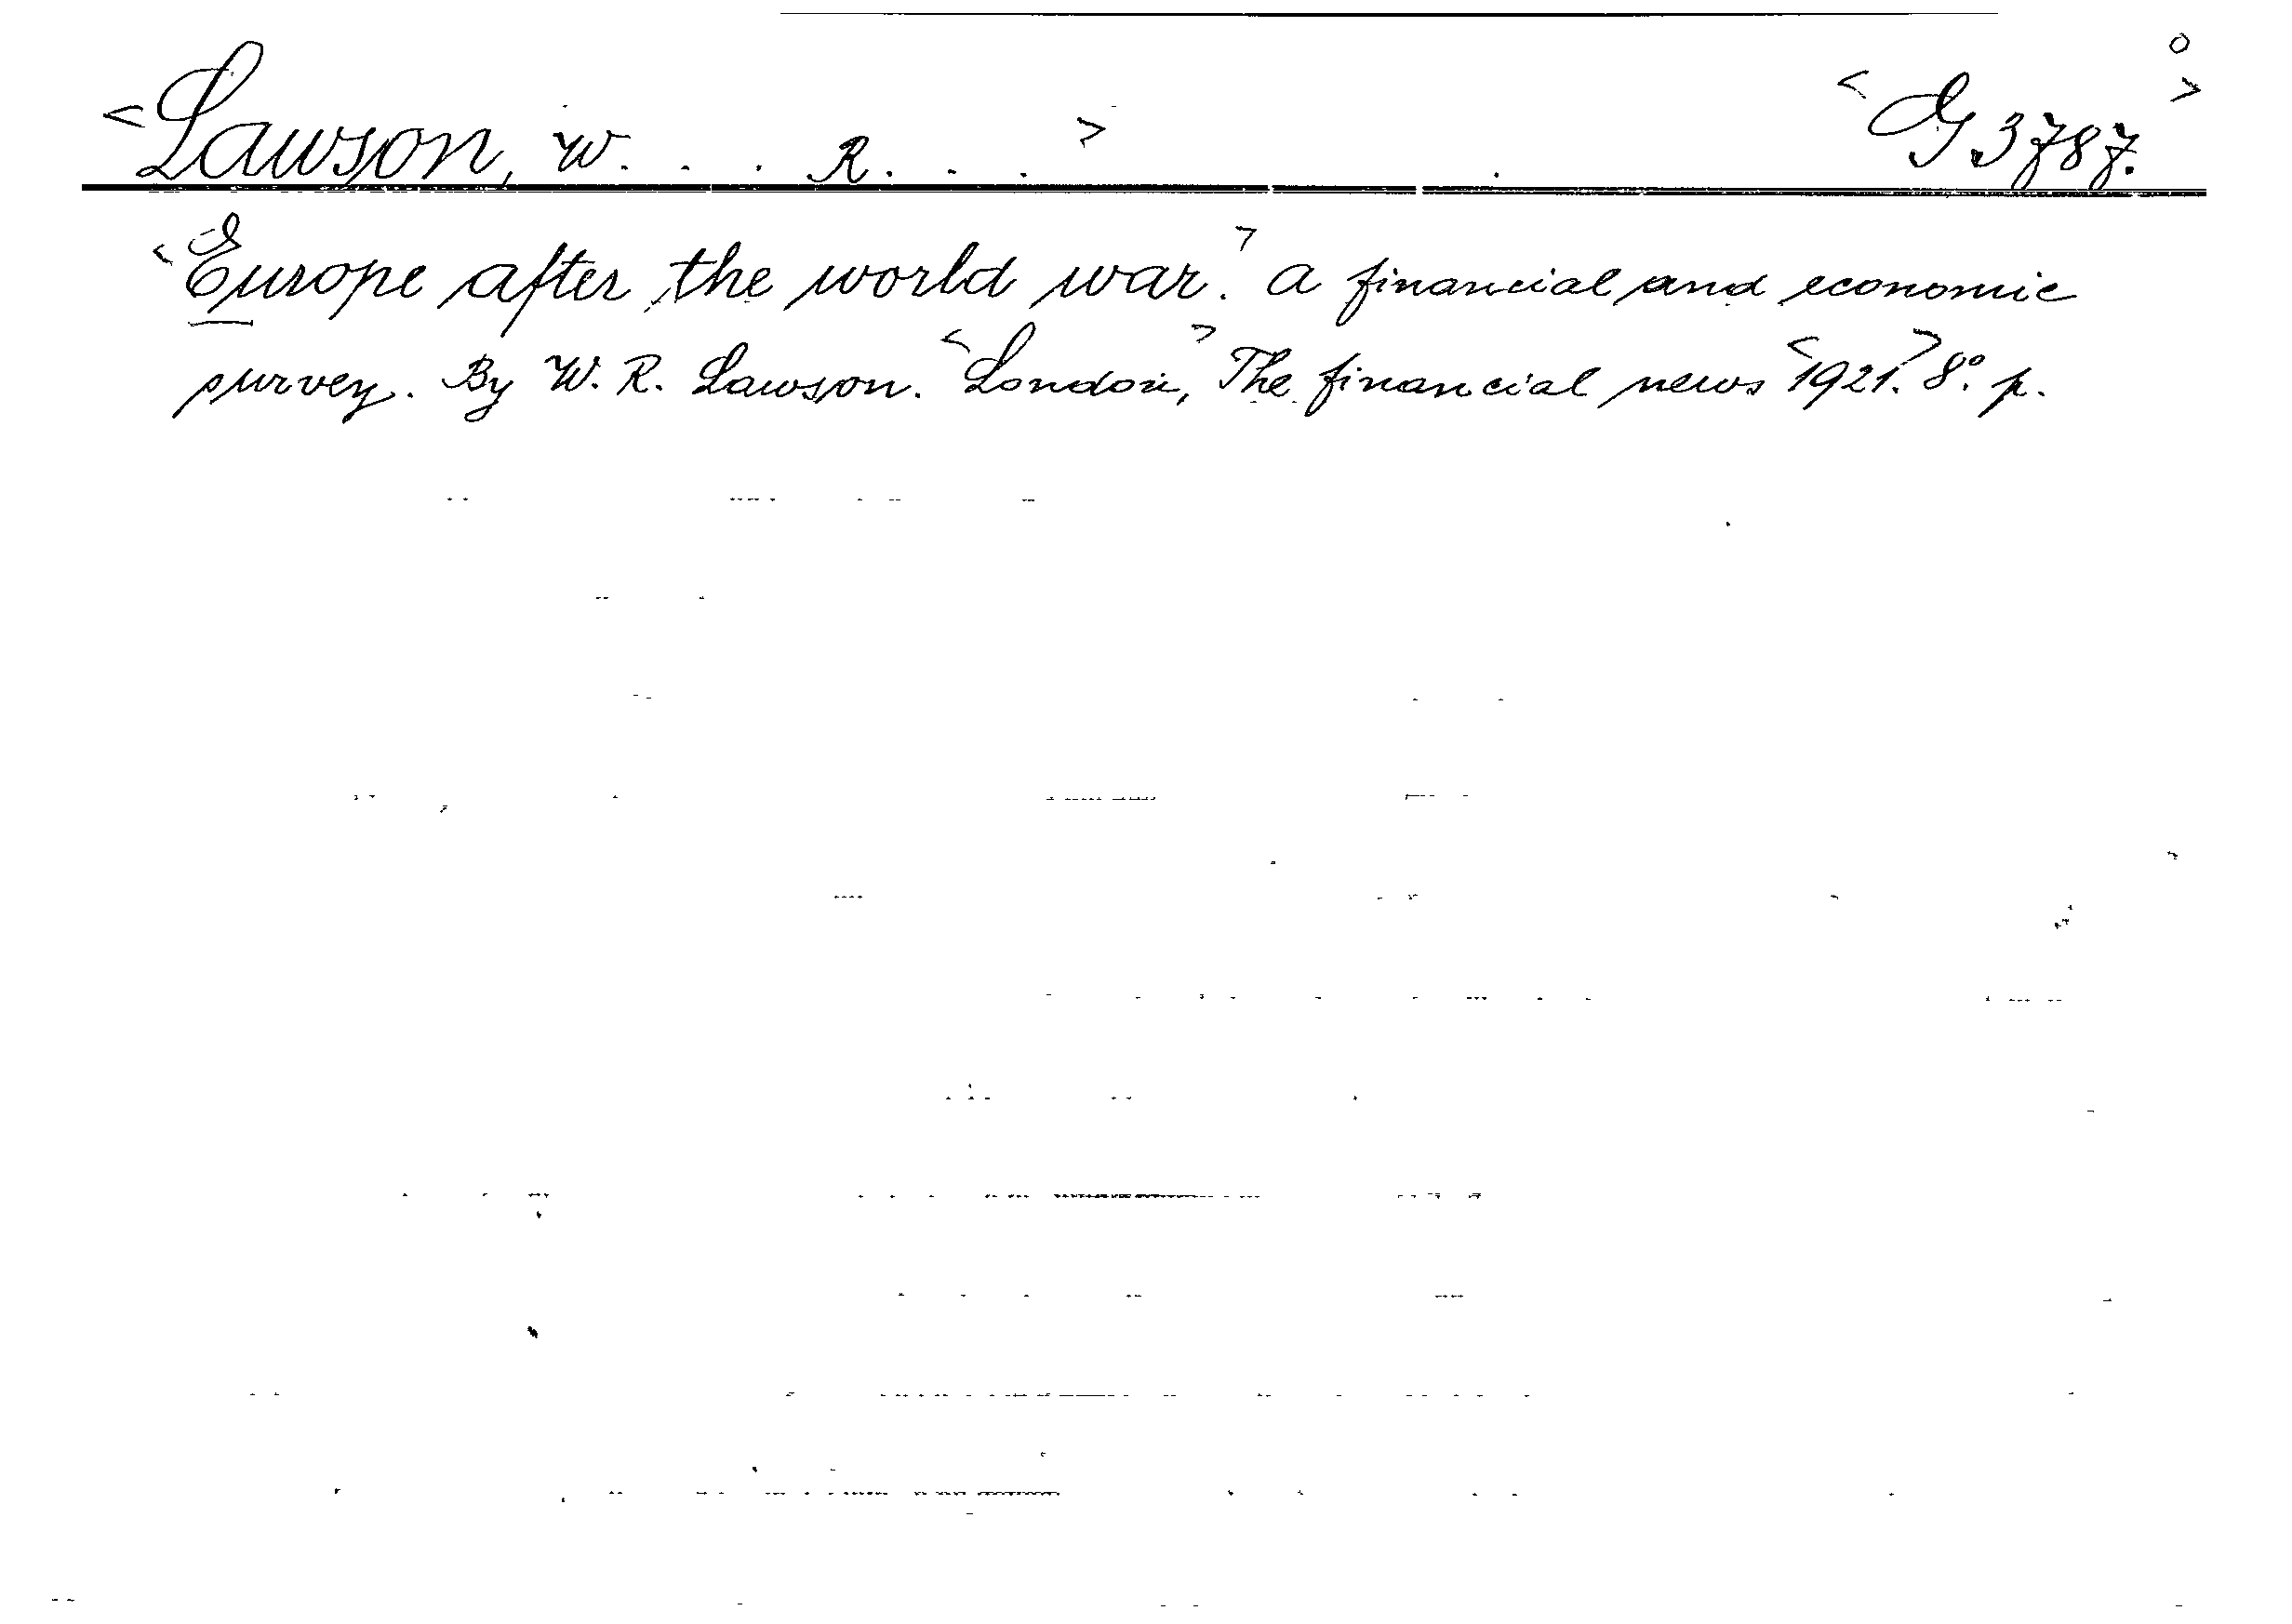 <Lawson, W. . . R. . .> <G 3787.>
<Europe after the world war.> a financial and economic
survey. By W. R. Lawson. <London,> The financial news <1921.> 8°. p.